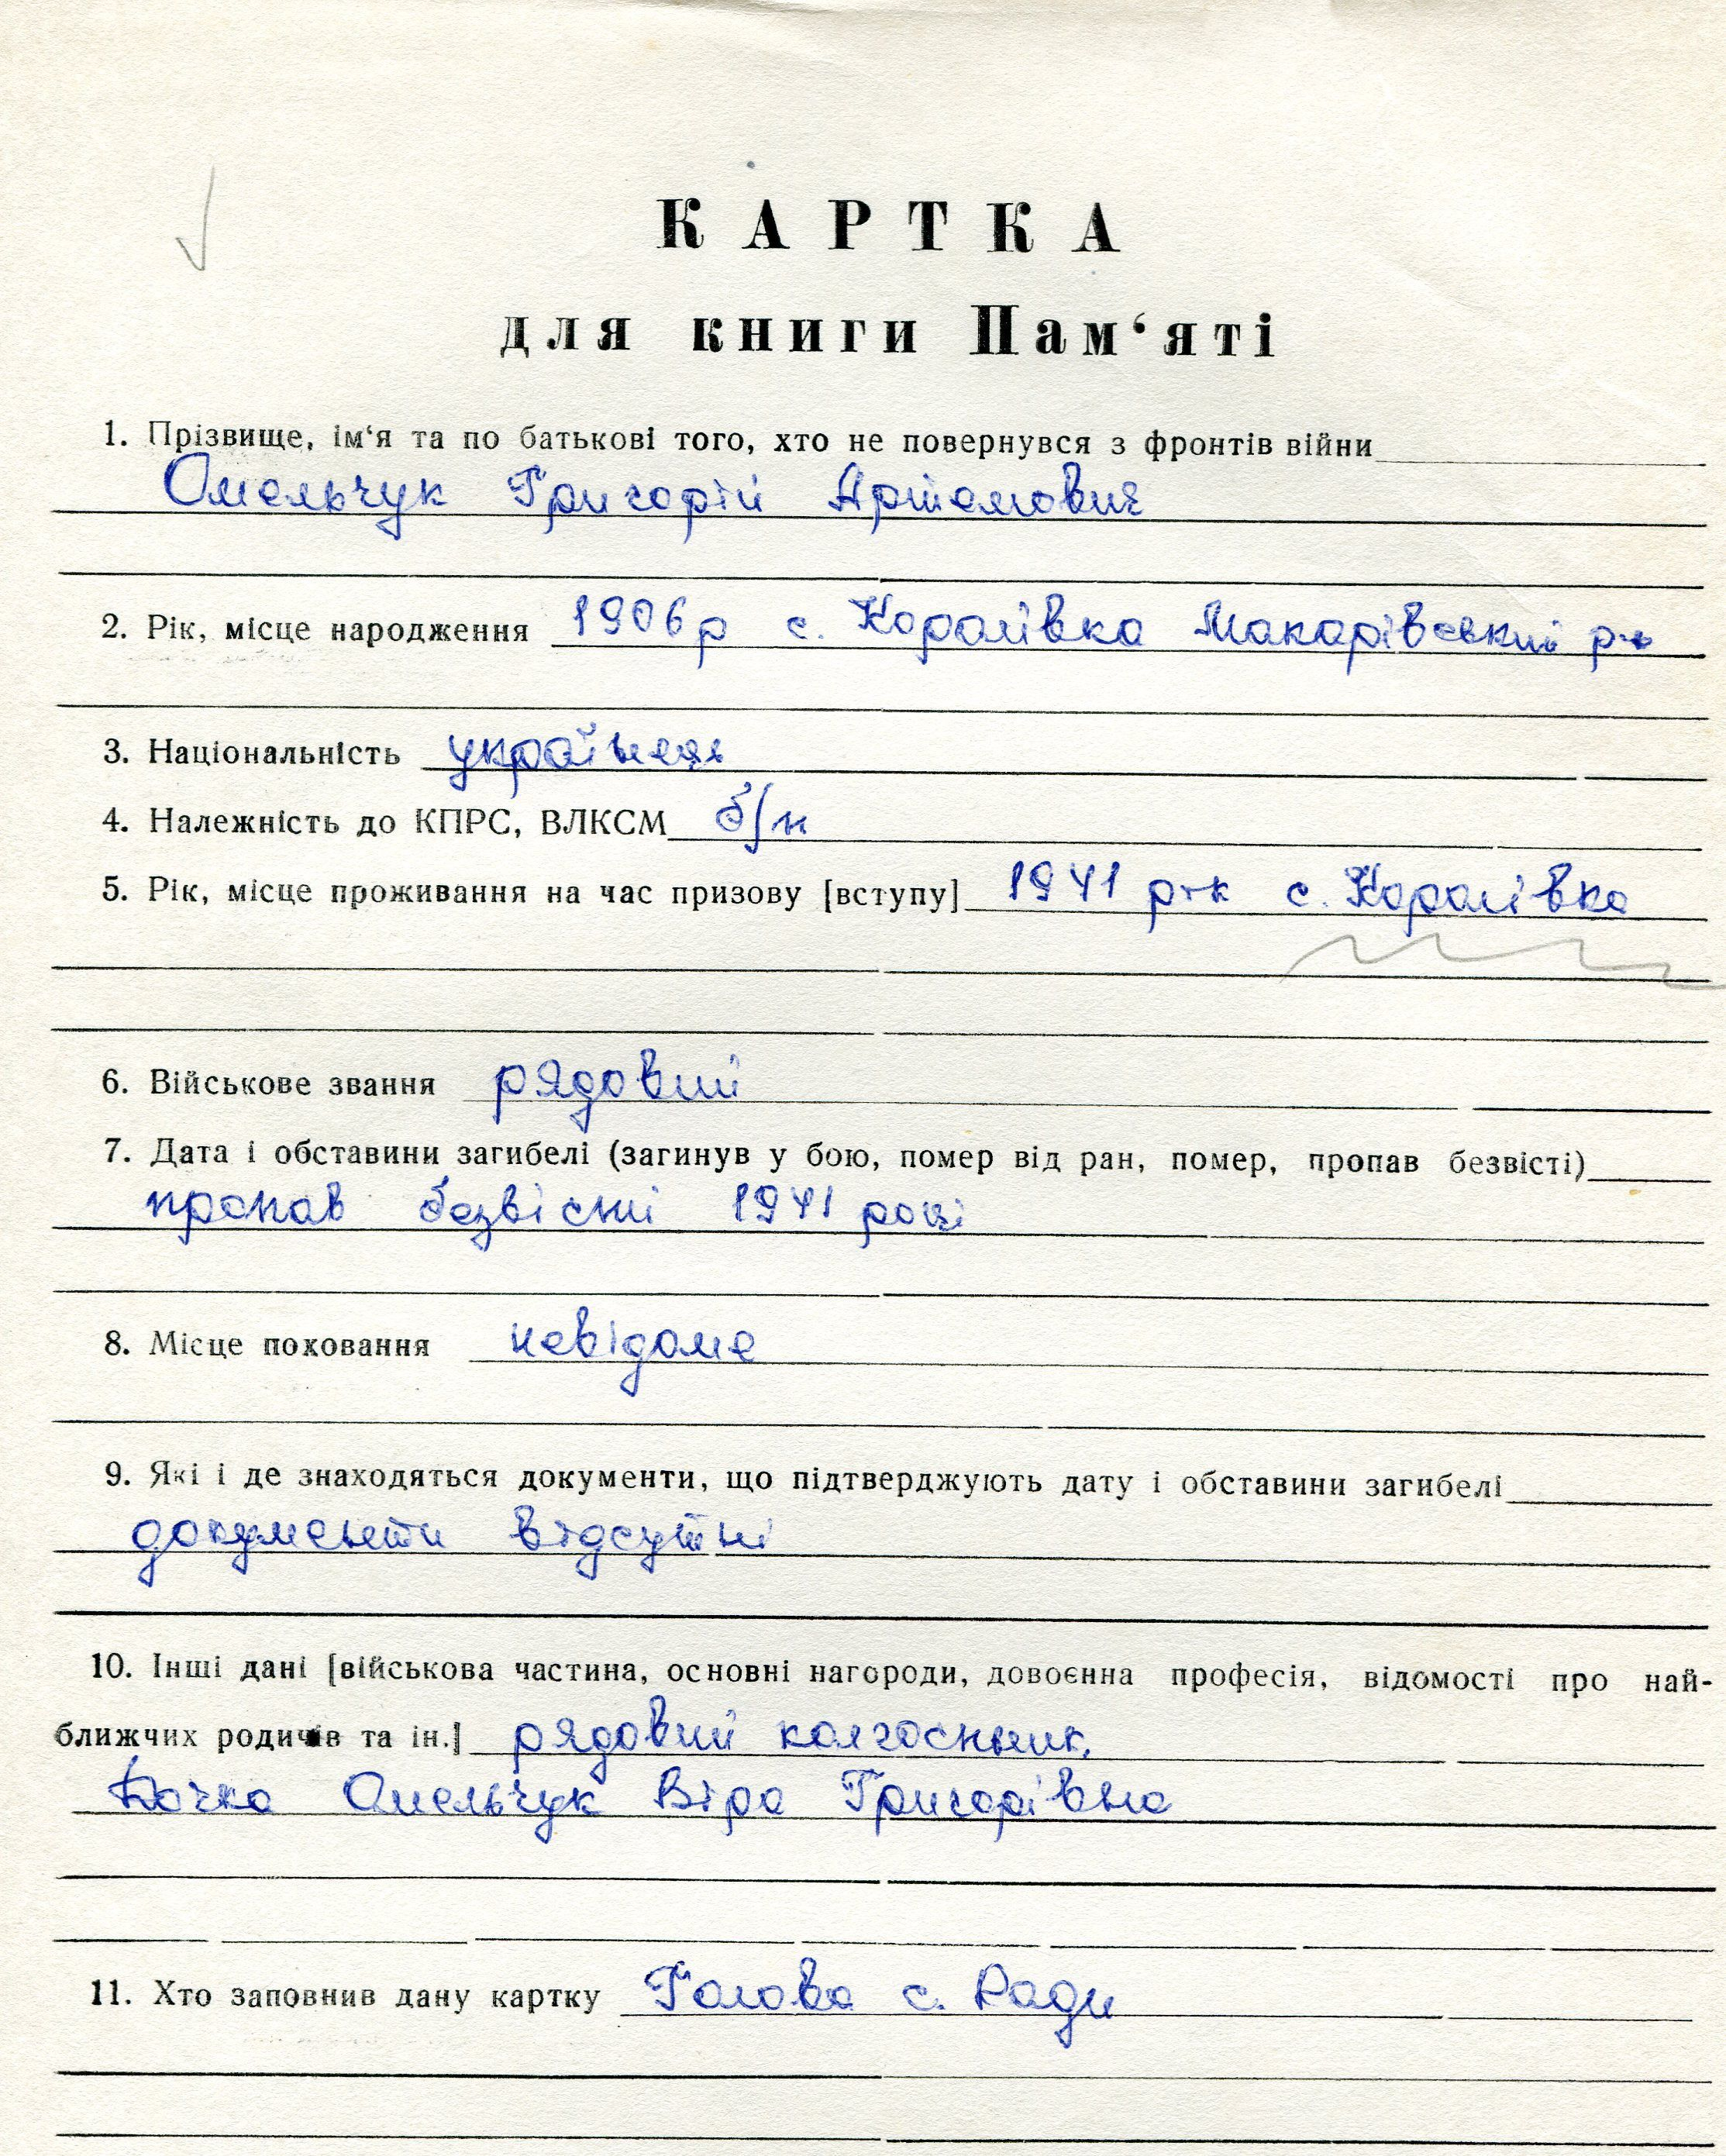 КАРТКА
для книги Пам‘яті
1. Прізвище, ім‘я та по батькові того, хто не повернувся з фронтів війни
Омельчук Григорій Артемович
2. Рік, місце народження 1906р с. Королівка Макарівський р-н
3. Національність українець
4. Належність до КПРС, ВЛКСМ б/п
5. Рік, місце проживання на час призову [вступу] 1941 рік с. Королівка
6. Військове звання рядовий
7. Дата і обставини загибелі (загинув у бою, помер від ран, помер, пропав безвісті)
пропав безвісті 1941 році
8. Місце поховання невідоме
9. Які і де знаходяться документи, що підтверджують дату і обставини загибелі
документи відсутні
10. Інші дані [військова частина, основні нагороди, довоєнна професія, відомості про най-
ближчих родичів та ін.] рядовий колгоспник,
Дочка Омельчук Віра Григорівна
11. Хто заповнив дану картку Голова с. Ради